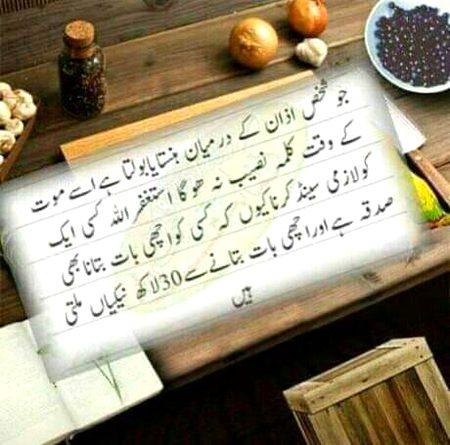 جو شخص اذان کے درمیان ہنستا یا بولتا ہے اسے موت
کے وقت کلمہ نصیب نہ ہوگا استغفر اللہ کسی ایک
کو لازمی سینڈ کرنا کیوں کہ کسی کو اچھی بات بتانا بھی
صدقہ ہے اور اچھی بات بتانے سے 30 لاکھ نیکیاں ملتی
ہیں